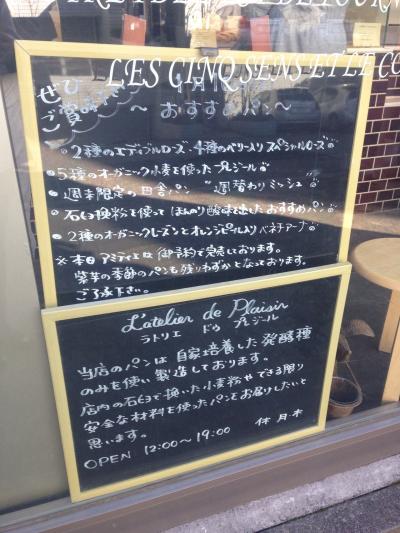 LES CINQ SENS ET LE CO
ぜひ
ご賞味下さい
～ おすすめパン ～
2種のエディブルローズ・4種のベリー入り スペシャルローズ
5種のオーガニック小麦を使ったプレジール
週末限定の田舎パン "週替わりミッシュ"
石臼挽粉を使って ほんのり酸味を出したおすすめパン
2種のオーガニックレーズンとオレンジピール入り ベネチアーナ
※本日 アミティエは 御予約で完売しております。
紫芋の季節のパンも残りわずかとなっております。
ご了承下さい。
L'atelier de Plaisir
ラトリエ ドゥ プレジール
当店のパンは 自家培養した発酵種
のみを使い製造しております。
店内の石臼で挽いた小麦粉や できる限り
安全な材料を使ったパンをお届けしたいと
思います。
OPEN 12:00～19:00 休 月 木